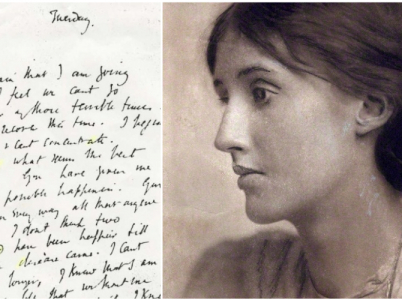 Tuesday.
that I am going
feel we cant go
any more terrible times
recover this time. I begin
cant concentrate.
what seems the best
You have given me
possible happiness. You
every way all that anyone
I dont think two
have been happier till
disease came. I cant
longer, I know that I am
that without me
I know